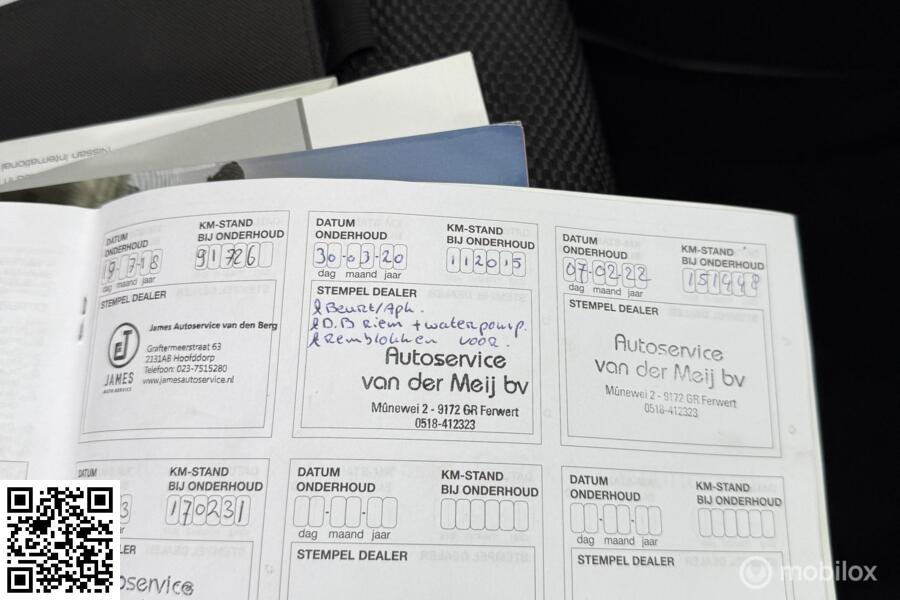 Nissan International
DATUM
ONDERHOUD
KM-STAND
BIJ ONDERHOUD
19-7-18
91726
dag maand jaar
STEMPEL DEALER
James Autoservice van den Berg
Graftermeerstraat 63
2131AB Hoofddorp
Telefoon: 023-7515280
www.jamesautoservice.nl
JAMES
AUTOSERVICE
DATUM
ONDERHOUD
KM-STAND
BIJ ONDERHOUD
30-03-20
112015
dag maand jaar
STEMPEL DEALER
Beurt/Apk.
D.B riem + waterpomp.
Remblokken voor.
Autoservice
van der Meij bv
Mûnewei 2 - 9172 GR Ferwert
0518-412323
DATUM
ONDERHOUD
KM-STAND
BIJ ONDERHOUD
07-02-22
151448
dag maand jaar
STEMPEL DEALER
Autoservice
van der Meij bv
Mûnewei 2 - 9172 GR Ferwert
0518-412323
DATUM
KM-STAND
BIJ ONDERHOUD
3
170231
jaar
LER
oservice
DATUM
ONDERHOUD
KM-STAND
BIJ ONDERHOUD
dag maand jaar
STEMPEL DEALER
DATUM
ONDERHOUD
KM-STAND
BIJ ONDERHOUD
dag maand jaar
STEMPEL DEALER
mobilox